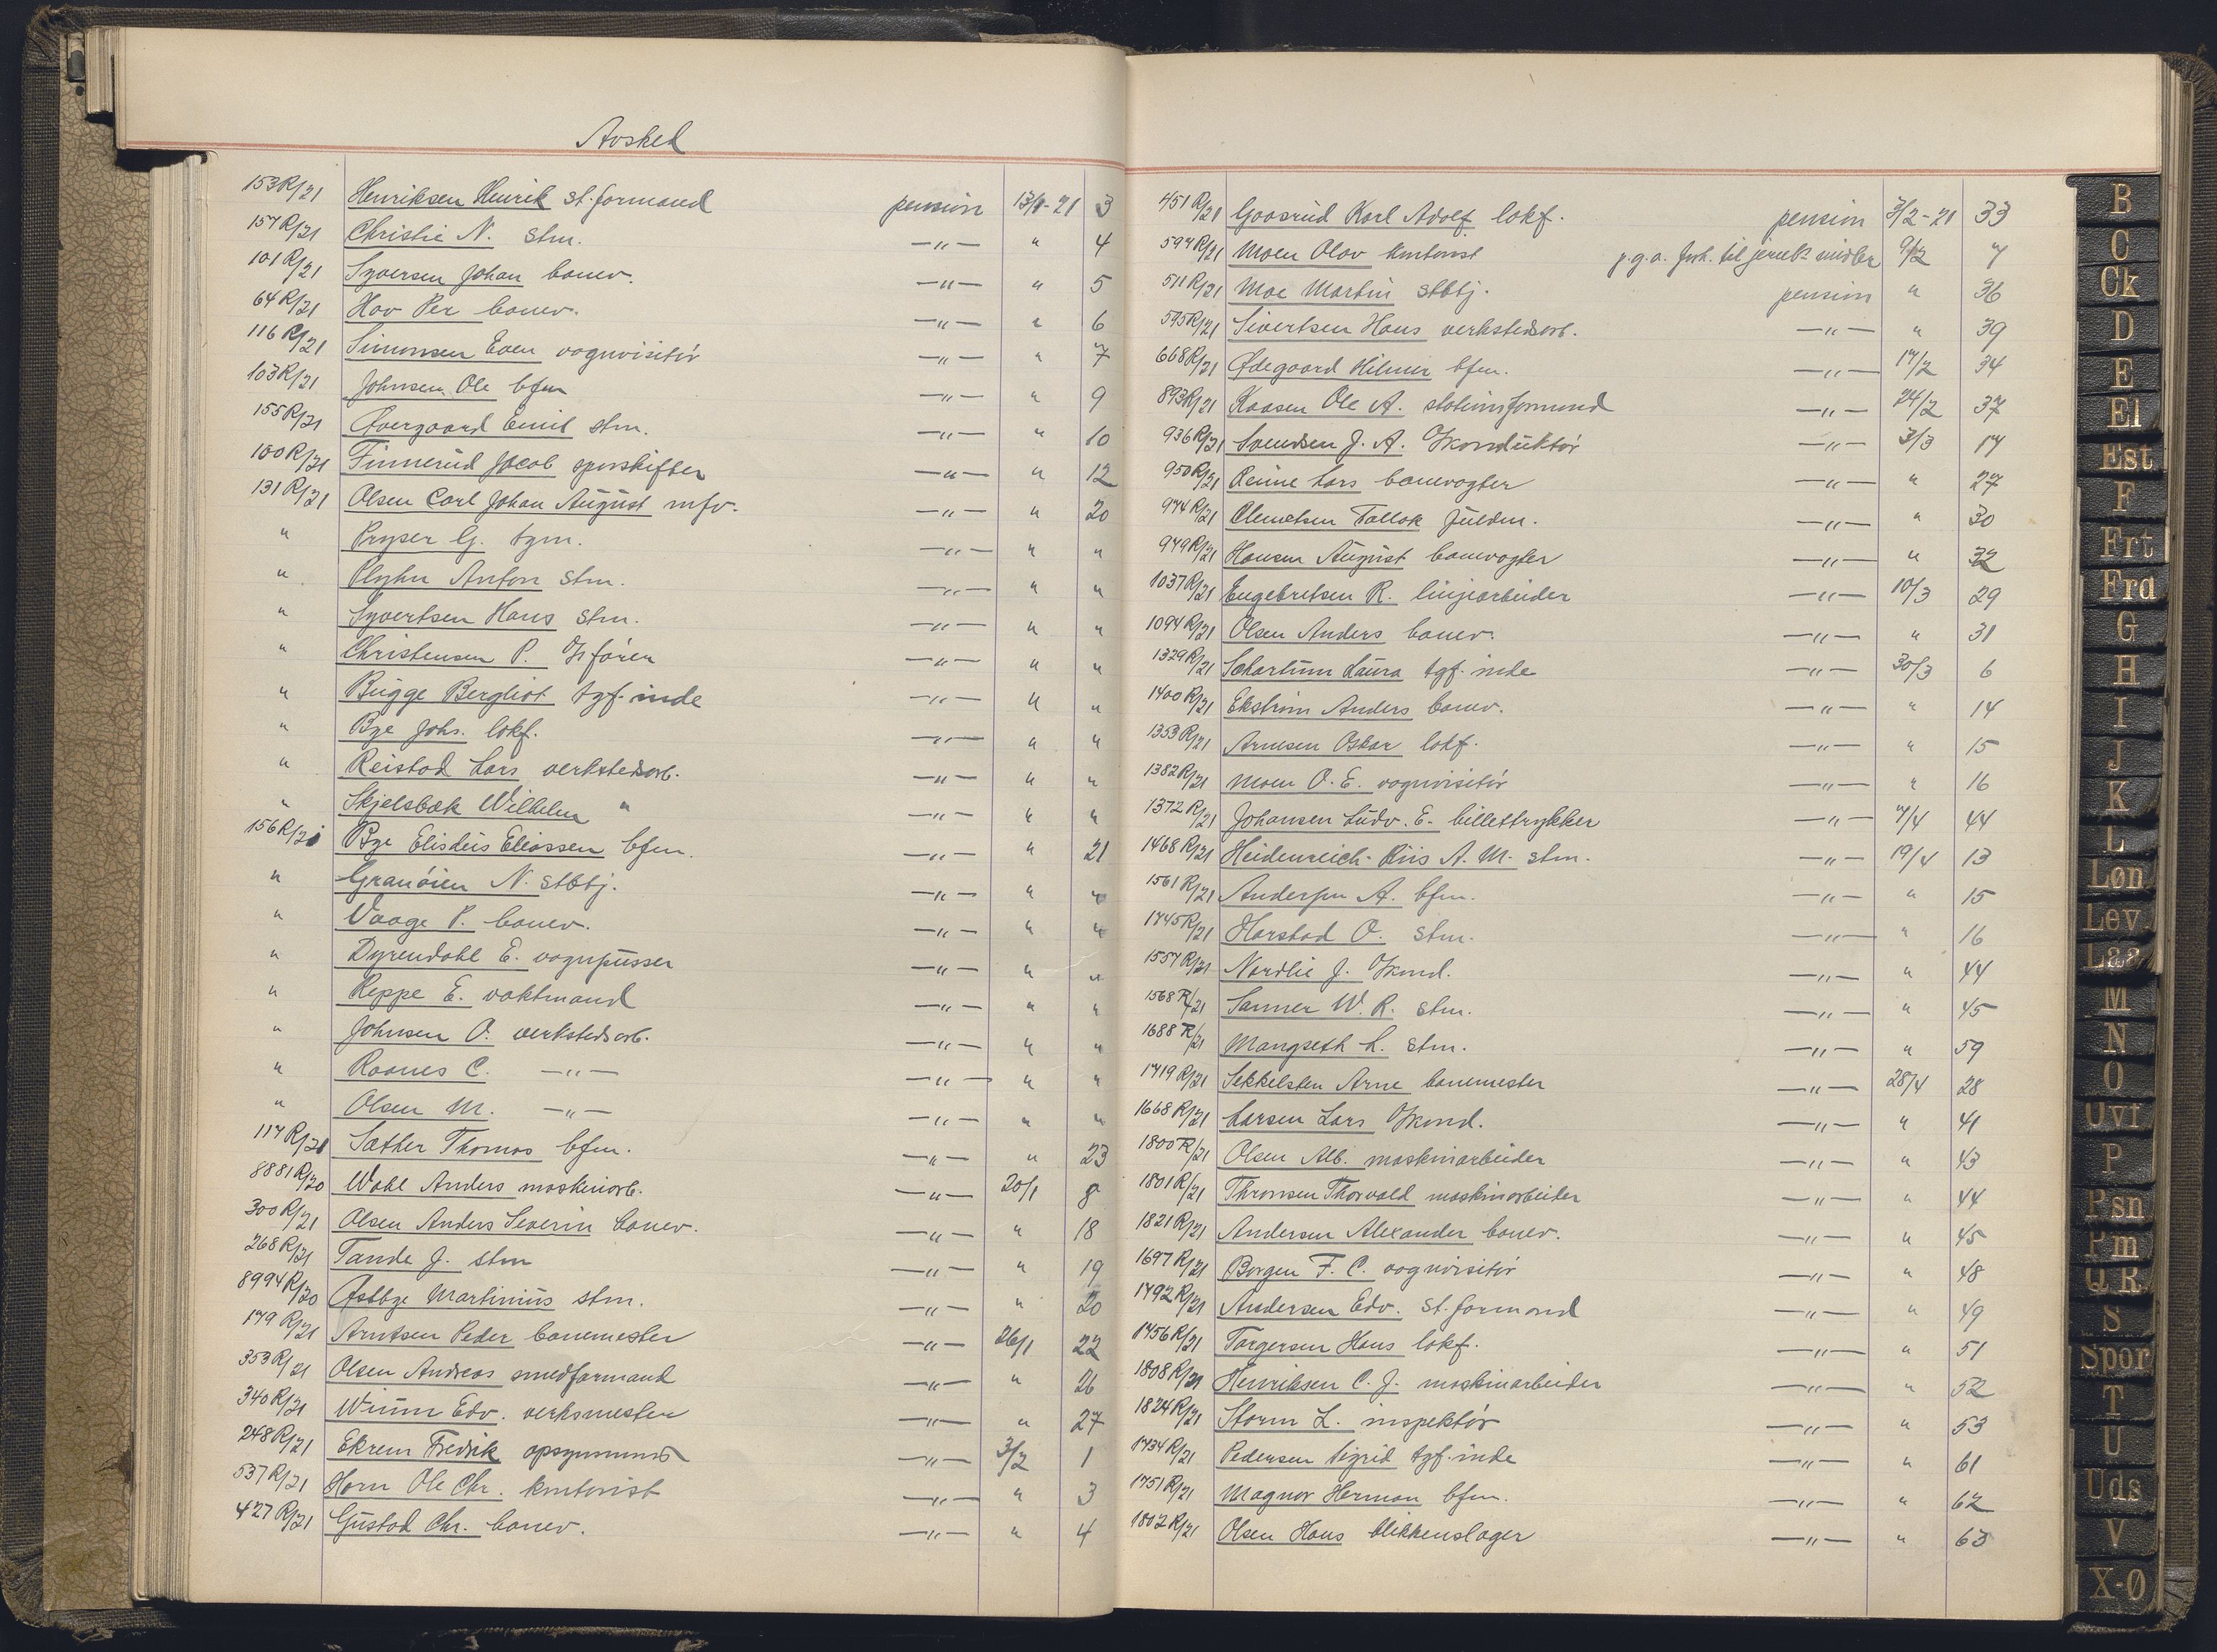 Avsked
153 R/21 Henriksen Henrik st. formand pension 13/1-21 3
157 R/21 Christie N. stm. —"— " 4
101 R/21 Syversen Johan banev. —"— " 5
64 R/21 Hov Per banev. —"— " 6
116 R/21 Simonsen Even vognvisitör —"— " 7
103 R/21 Johnsen Ole bfm —"— " 9
155 R/21 Overgaard Emil stm. —"— " 10
100 R/21 Finnerud Jacob sporskifter —"— " 12
131 R/21 Olsen Carl Johan August mfv. —"— " 20
" Pryser G. tgm. —"— " "
" Plyhn Anton stm. —"— " "
" Syvertsen Hans stm. —"— " "
" Christensen P. —"— " "
" Bugge Bergliot tgf.inde —"— " "
" Bye Johs. lokf. —"— " "
" Reistad Lars verkstedsarb. —"— " "
" Skjelsbæk Wilhelm " —"— " "
156 R/21 Bye Elisæus Eliassen bfm. —"— " 21
" Granöien N. stbtj. —"— " "
" Vaage P. banev. —"— " "
" Dyrendahl E. vognpusser —"— " "
" Reppe E. vaktmand —"— " "
" Johnsen O. verkstedsarb. —"— " "
" Raanes C. —"— —"— " "
" Olsen M. —"— —"— " "
117 R/21 Sæther Thomas bfm. —"— " 23
8881 R/20 Wahl Anders maskinarb. —"— 20/1 8
300 R/21 Olsen Anders Severin banev. —"— " 18
268 R/21 Tande J. stm —"— " 19
8994 R/20 Østbye Martinius stm. —"— " 20
179 R/21 Arntsen Peder banemester —"— 26/1 22
353 R/21 Olsen Andreas smedformand —"— " 26
340 R/21 Winnn Edv. verksmester —"— " 27
248 R/21 Ekrem Fredrik opsynsmand —"— 3/2 1
537 R/21 Horn Ole Chr. kontorist —"— " 3
427 R/21 Gustad Chr. banev. —"— " 4
451 R/21 Gaasrud Karl Adolf lokf. pension 3/2-21 33
597 R/21 Moen Olav kontorist p.g.a. forh. til jernb. midler 9/2 7
511 R/21 Moe Martin stbtj. pension " 36
595 R/21 Sivertsen Hans verkstedsarb. —"— " 39
668 R/21 Ødegaard Hilmer bfm. —"— 17/2 34
893 R/21 Kaasen Ole A. stationsformand —"— 24/2 37
936 R/21 Svendsen J. A. Okonduktör —"— 3/3 17
950 R/21 Renne Lars banevogter —"— " 27
974 R/21 Clemetsen Tallak fuldm. —"— " 30
979 R/21 Hansen August banevogter —"— " 32
1037 R/21 Engebretsen R. linjearbeider —"— 10/3 29
1094 R/21 Olsen Anders banev. —"— " 31
1329 R/21 Schartum Laura tgf.inde —"— 30/3 6
1400 R/21 Ekström Anders banev. —"— " 14
1353 R/21 Arnesen Oskar lokf. —"— " 15
1382 R/21 Moen O. E. vognvisitör —"— " 16
1372 R/21 Johansen Ludv. E. billettrykker —"— 7/4 44
1468 R/21 Heidenreich-Riis A. M. stm. —"— 19/4 13
1561 R/21 Andersen A. bfm. —"— " 15
1745 R/21 Harstad O. stm. —"— " 16
1557 R/21 Nordlie J. Okond. —"— " 44
1568 R/21 Sanner W. R. stm. —"— " 45
1688 R/21 Mangseth L. stm. —"— " 59
1719 R/21 Sekkelsten Arne banemester —"— 28/4 28
1668 R/21 Larsen Lars Okond. —"— " 41
1800 R/21 Olsen Alb. maskinarbeider —"— " 43
1801 R/21 Thronsen Thorvald maskinarbeider —"— " 44
1821 R/21 Andersen Alexander banev. —"— " 45
1697 R/21 Borgen F. C. vognvisitör —"— " 48
1792 R/21 Andersen Edv. st. formand —"— " 49
1756 R/21 Torgersen Hans lokf. —"— " 51
1808 R/21 Henriksen C. J. maskinarbeider —"— " 52
1824 R/21 Storm L. inspektör —"— " 53
1734 R/21 Pedersen Sigrid tgf.inde —"— " 61
1751 R/21 Magnor Herman bfm. —"— " 62
1802 R/21 Olsen Hans blikkenslager —"— " 63
B
C
Ck
D
E
El
Est
F
Frt
Fra
G
H
I
J
K
L
Løn
Lev
Laa
M
N
O
Ovf
P
Psn
Pm
Q R
S
Spor
T
U
Uds
V
X-Ø